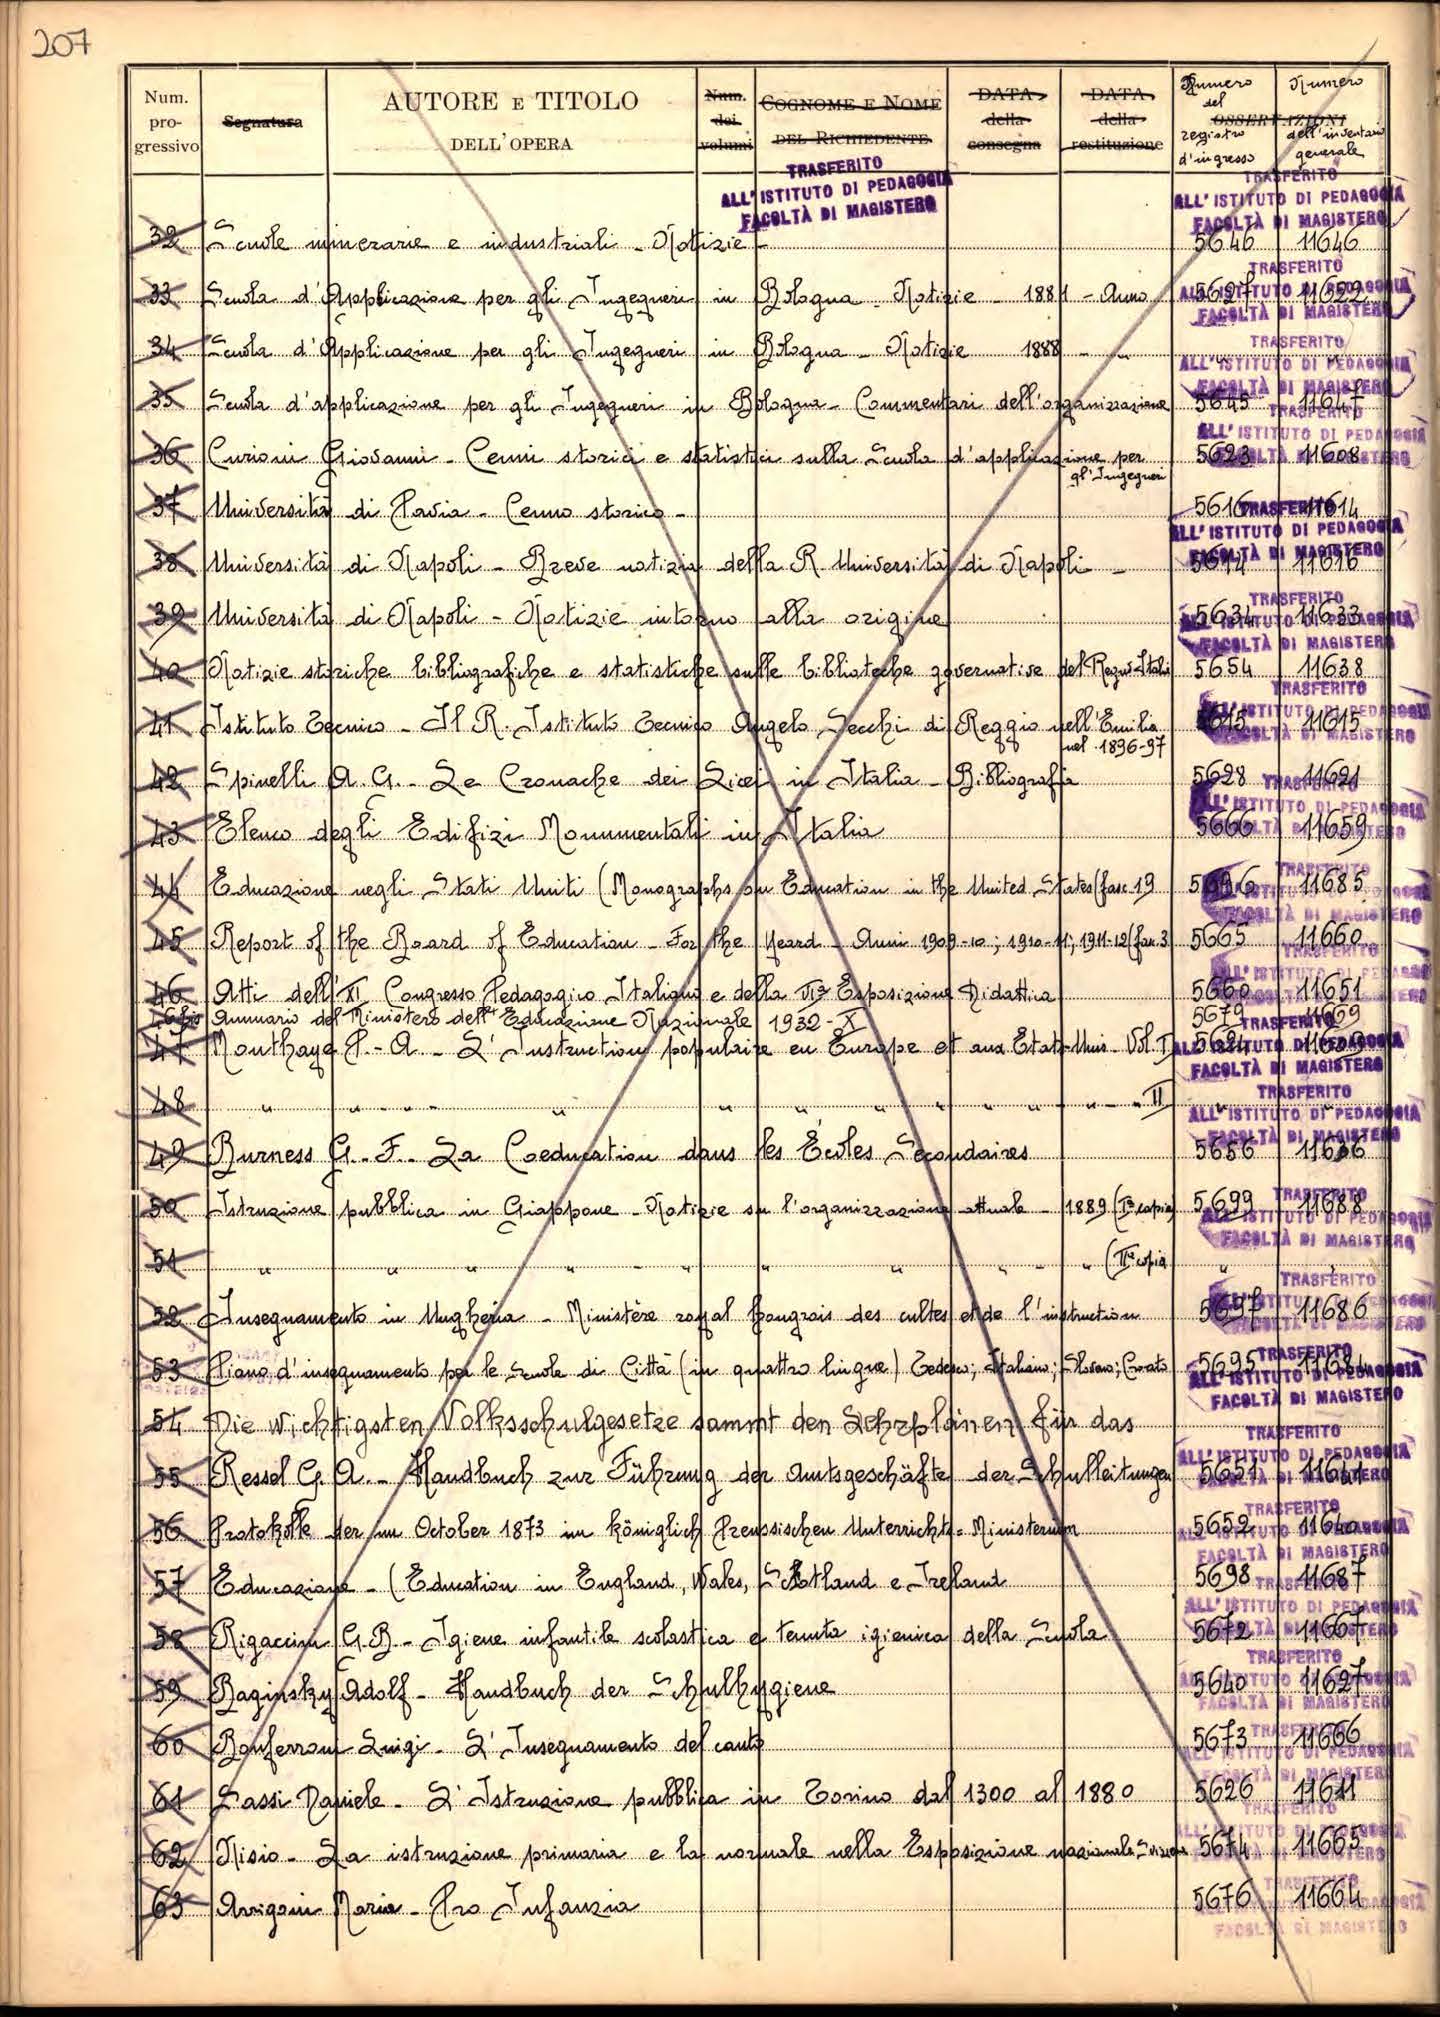 207
Num. pro- gressivo Segnatura AUTORE E TITOLO DELL'OPERA Num. dei volumi COGNOME E NOME DEL RICHIEDENTE DATA della consegna DATA della restituzione OSSERVAZIONI Numero del registro d'ingresso Numero dell'inventario generale
TRASFERITO
ALL'ISTITUTO DI PEDAGOGIA
FACOLTÀ DI MAGISTERO
TRASFERITO
ALL'ISTITUTO DI PEDAGOGIA
FACOLTÀ DI MAGISTERO
32 Scuole minerarie e industriali - Notizie - 5646 11646
33 Scuola d'Applicazione per gli Ingegneri in Bologna - Notizie - 1881 - Anno 5627 11622
34 Scuola d'Applicazione per gli Ingegneri in Bologna - Notizie 1888 - "
35 Scuola d'applicazione per gli Ingegneri in Bologna - Commentari dell'organizzazione 5645 11647
36 Curioni Giovanni - Cenni storici e statistici sulla Scuola d'applicazione per gl'Ingegneri 5623 11608
37 Università di Pavia - Cenno storico - 5616 11614
38 Università di Napoli - Breve notizia della R. Università di Napoli - 11616
39 Università di Napoli - Notizie intorno alla origine 5634 11633
40 Notizie storiche bibliografiche e statistiche sulle biblioteche governative del Regno Italia 5654 11638
41 Istituto Tecnico - Il R. Istituto Tecnico Angelo Secchi di Reggio nell'Emilia nel 1896-97 5615 11615
42 Spinelli A. G. - Le Cronache dei Licei in Italia - Bibliografia 5628 11621
43 Elenco degli Edifizi Monumentali in Italia 5666 11659
44 Educazione negli Stati Uniti (Monographs on Education in the United States (fasc. 19 5696 11685
45 Report of the Board of Education - For the Yeard - Anni 1909-10; 1910-11; 1911-12 (fasc. 3 5665 11660
46 Atti dell'XI Congresso Pedagogico Italiano e della VIa Esposizione Didattica 5660 11651
46bis Annuario del Ministero dell'Educazione Nazionale 1932-X 5679 11669
47 Monthaye P.-A. - L'Instruction populaire en Europe et aux Etats-Unis - Vol. I 5624
48 " " " " " " " " " " " " " II " "
49 Burness G. F. - La Coeducation dans les Écoles Secondaires 5656 11636
50 Istruzione pubblica in Giappone - Notizie su l'organizzazione attuale - 1889 (Ia copia) 5699 11688
51 " " " " " " " " " " (IIa copia " "
52 Insegnamento in Ungheria - Ministère royal hongrois des cultes et de l'instruction 5697 11686
53 Piano d'insegnamento per le Scuole di Città (in quattro lingue) Tedesco; Italiano; Sloveno; Croato 5695 11684
54 Die wichtigsten Volksschulgesetze sammt den Lehrplänen für das
55 Ressel G. A. - Handbuch zur Führung der Amtsgeschäfte der Schulleitungen 5651 11641
56 Protokolle der im October 1873 im königlich Preussischen Unterrichts-Ministerium 5652 11640
57 Educazione - (Education in England, Wales, Scotland e Ireland 5698 11687
58 Rigaccini G. B. - Igiene infantile scolastica e tenuta igienica della Scuola 5672 11667
59 Baginsky Adolf - Handbuch der Schulhygiene 5640 11627
60 Bonferroni Luigi - L'Insegnamento del canto 5673 11666
61 Sassi Daniele - L'Istruzione pubblica in Torino dal 1300 al 1880 5626 11611
62 Nisio - La istruzione primaria e la normale nella Esposizione nazionale Svizzera 5674 11665
63 Arrigoni Maria - Pro Infanzia 5676 11664